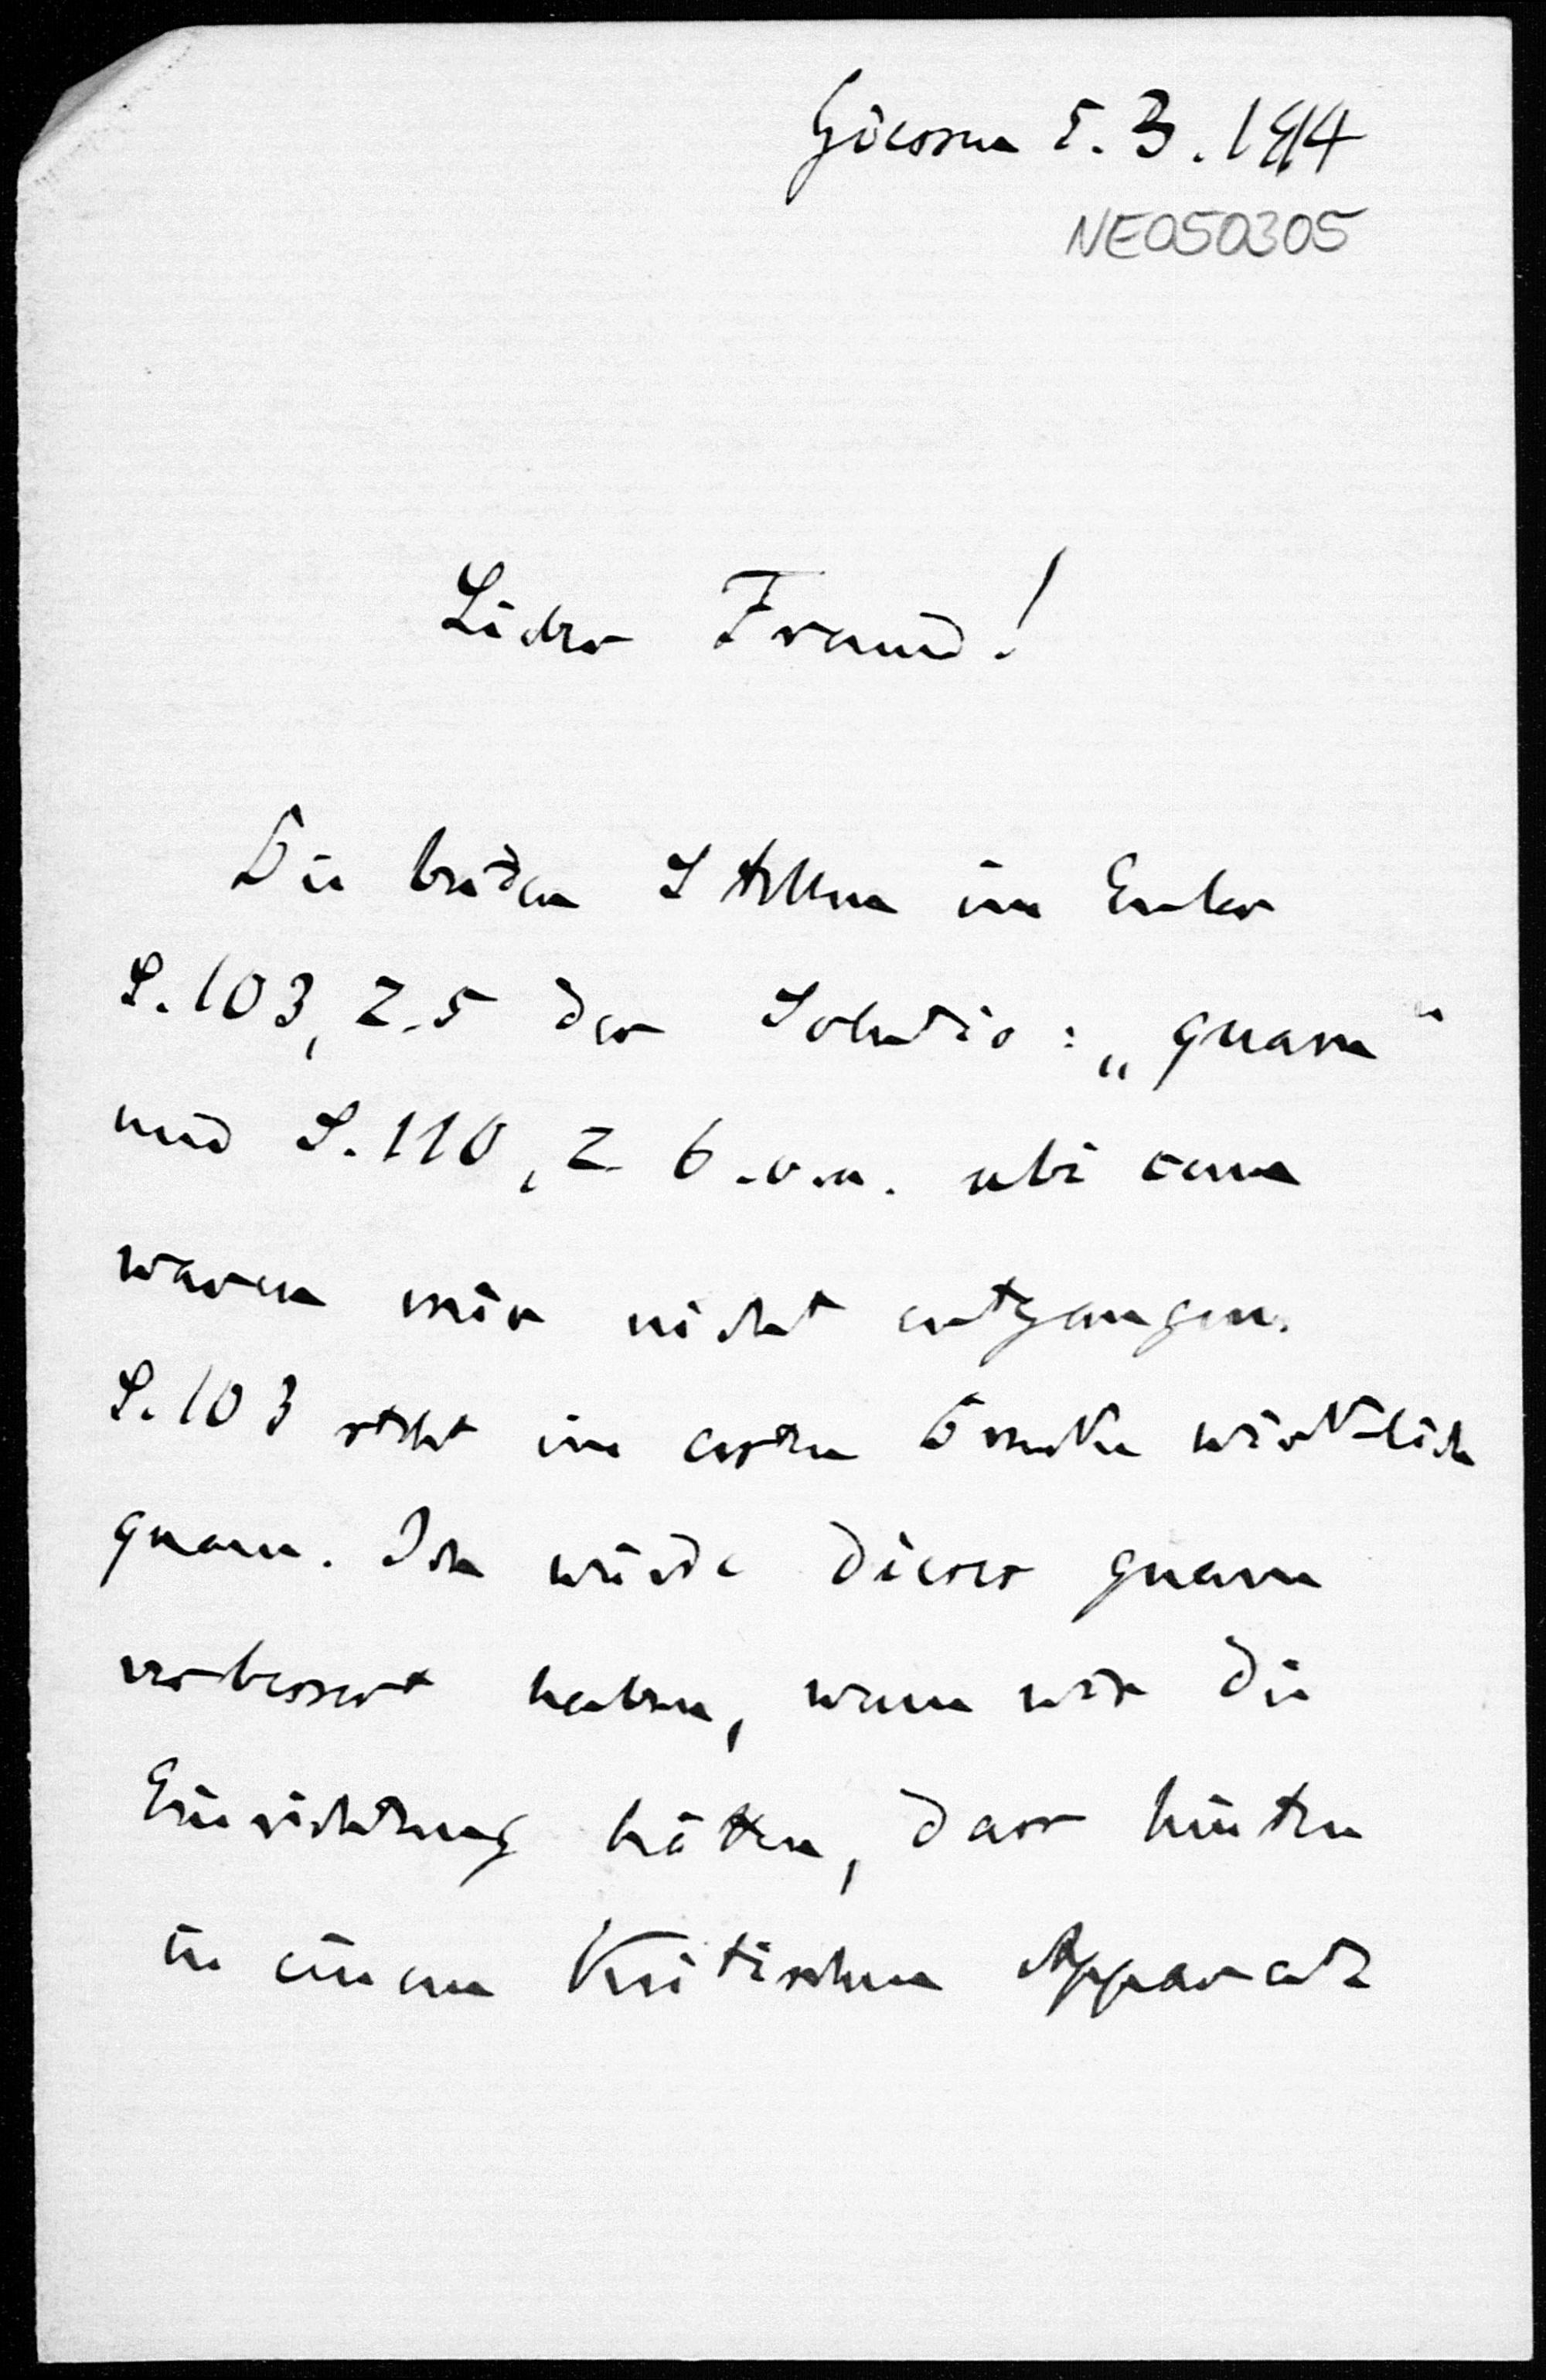 Giessen 5.3.1914
NE050305
Lieber Freund!
Die beiden Stellen im Euler
S. 103, Z. 5 der Solutio: „quam“
und S. 110, Z 6 v. u. ubi eam
waren mir nicht entgangen.
S. 103 steht im ersten Drucke wirklich
quam. Ich würde dieses quam
verbessert haben, wenn wir die
Einrichtung hätten, dass hinten
in einem Kritischen Apparate